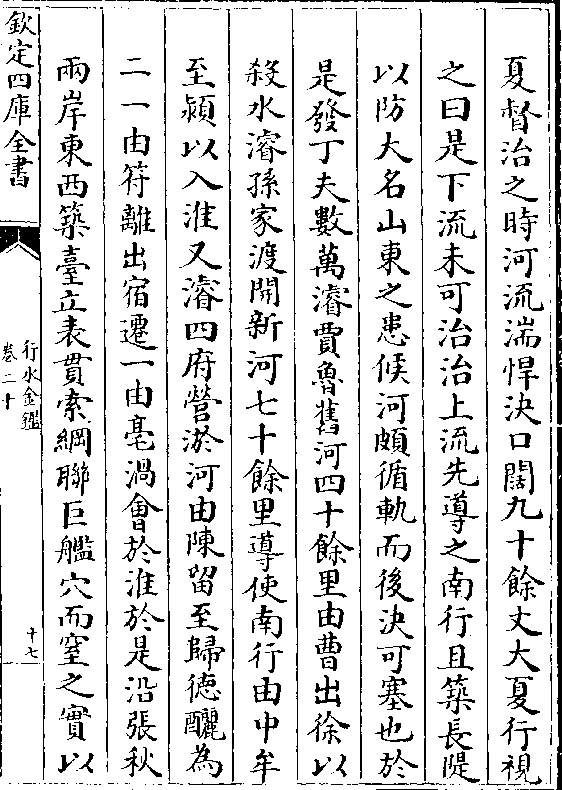 夏督治之時河流湍悍決口闊九十餘丈大夏行視
之曰是下流未可治治上流先導之南行且築長隄
以防大名山東之患候河頗循軌而後決可塞也於
是發丁夫數萬濬賈魯舊河四十餘里由曹出徐以
殺水濬孫家渡開新河七十餘里導使南行由中牟
至潁以入淮又濬四府營淤河由陳留至歸德釃為
二一由符離出宿遷一由亳渦會於淮於是沿張秋
兩岸東西築臺立表貫索綱聯巨艦穴而窒之實以
欽定四庫全書
行水金鑑
卷二十
十七